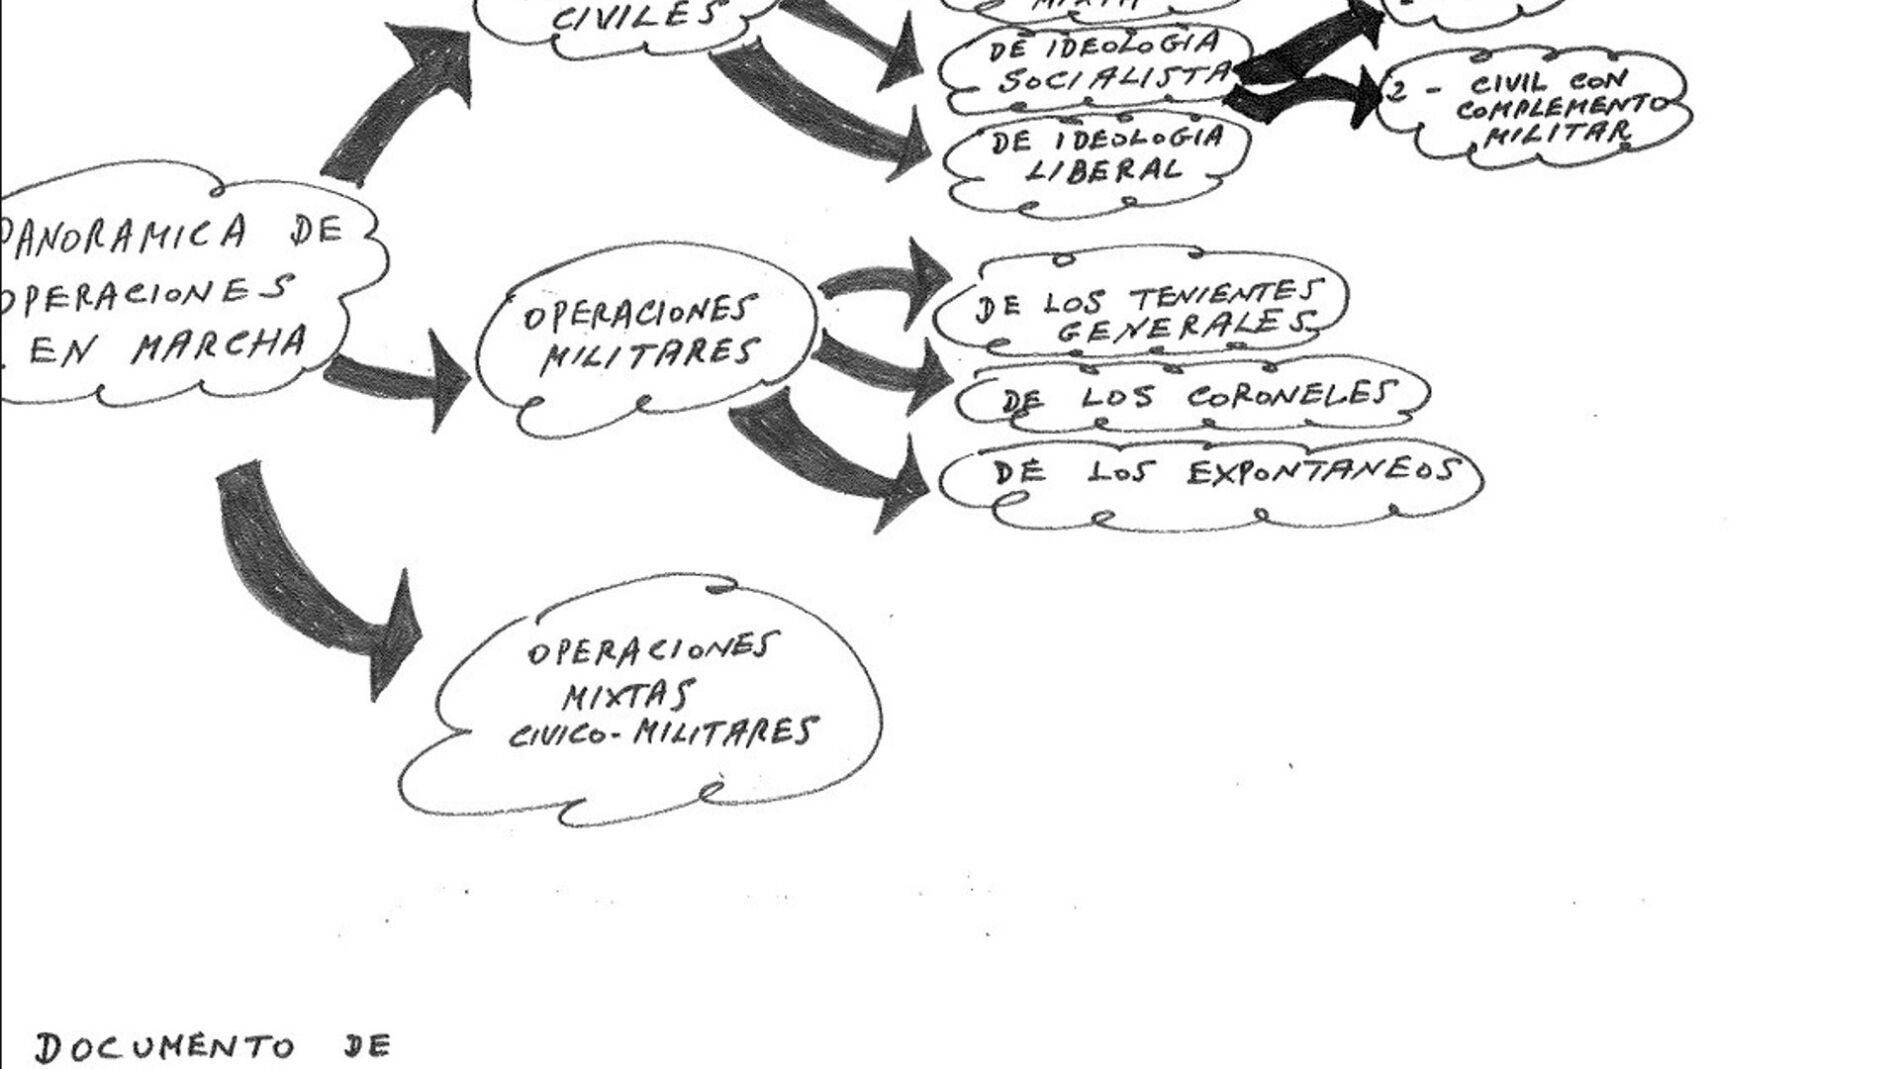 CIVILES
MIXTA
DE IDEOLOGIA
SOCIALISTA
2 - CIVIL CON
COMPLEMENTO
MILITAR
DE IDEOLOGIA
LIBERAL
PANORAMICA DE
OPERACIONES
EN MARCHA
OPERACIONES
MILITARES
DE LOS TENIENTES
GENERALES
DE LOS CORONELES
DE LOS EXPONTANEOS
OPERACIONES
MIXTAS
CIVICO-MILITARES
DOCUMENTO DE